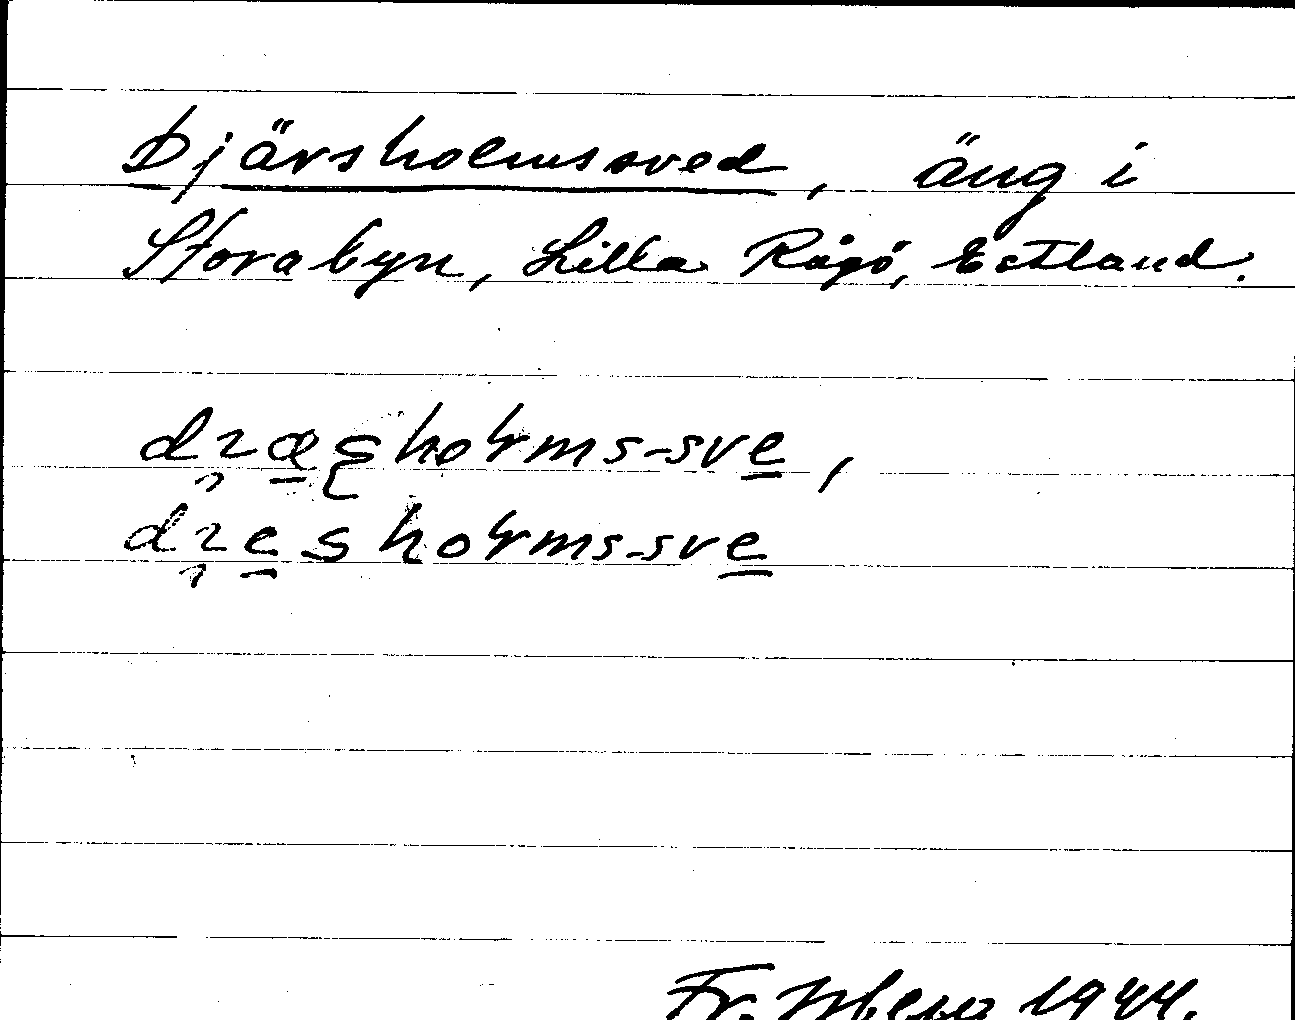 Djärsholmssved, äng i
Storabyn, Lilla Rågö, Estland.
dzæșholms-sve,
dzesholms-sve
Fr. 1944.